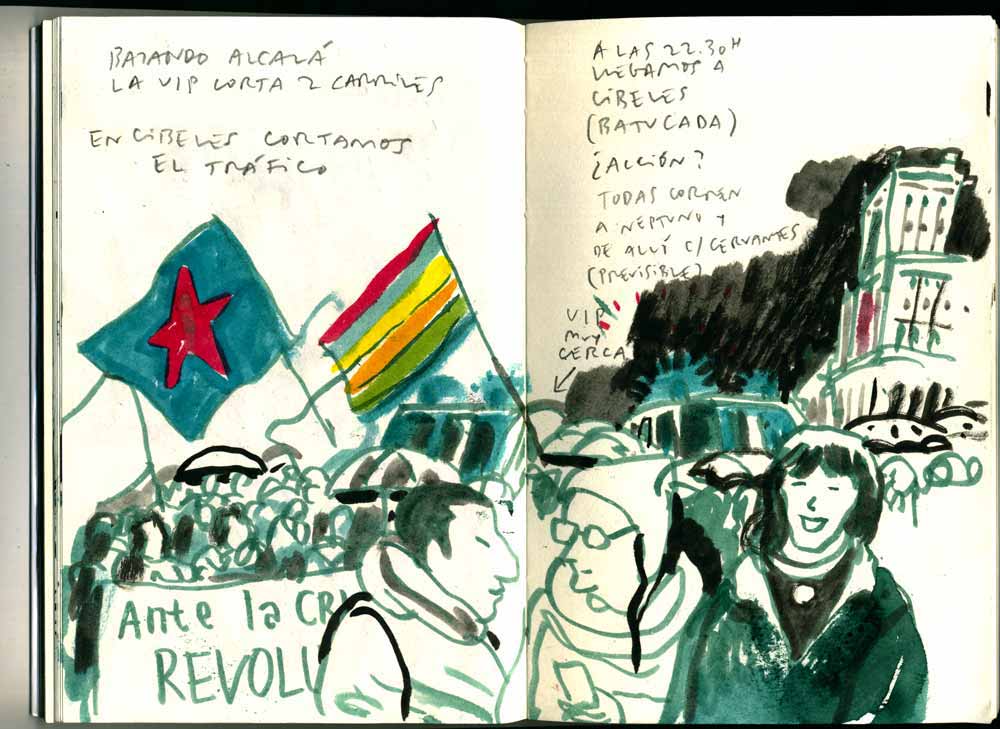 BAJANDO ALCALÁ
LA VIP CORTA 2 CARRILES
EN CIBELES CORTAMOS
EL TRÁFICO
Ante la CRI
REVOLU
A LAS 22.30H
LLEGAMOS A
CIBELES
(BATUCADA)
¿ACCIÓN?
TODAS CORREN
A NEPTUNO Y
DE ALLÍ C/ CERVANTES
(PREVISIBLE)
VIP
MUY
CERCA